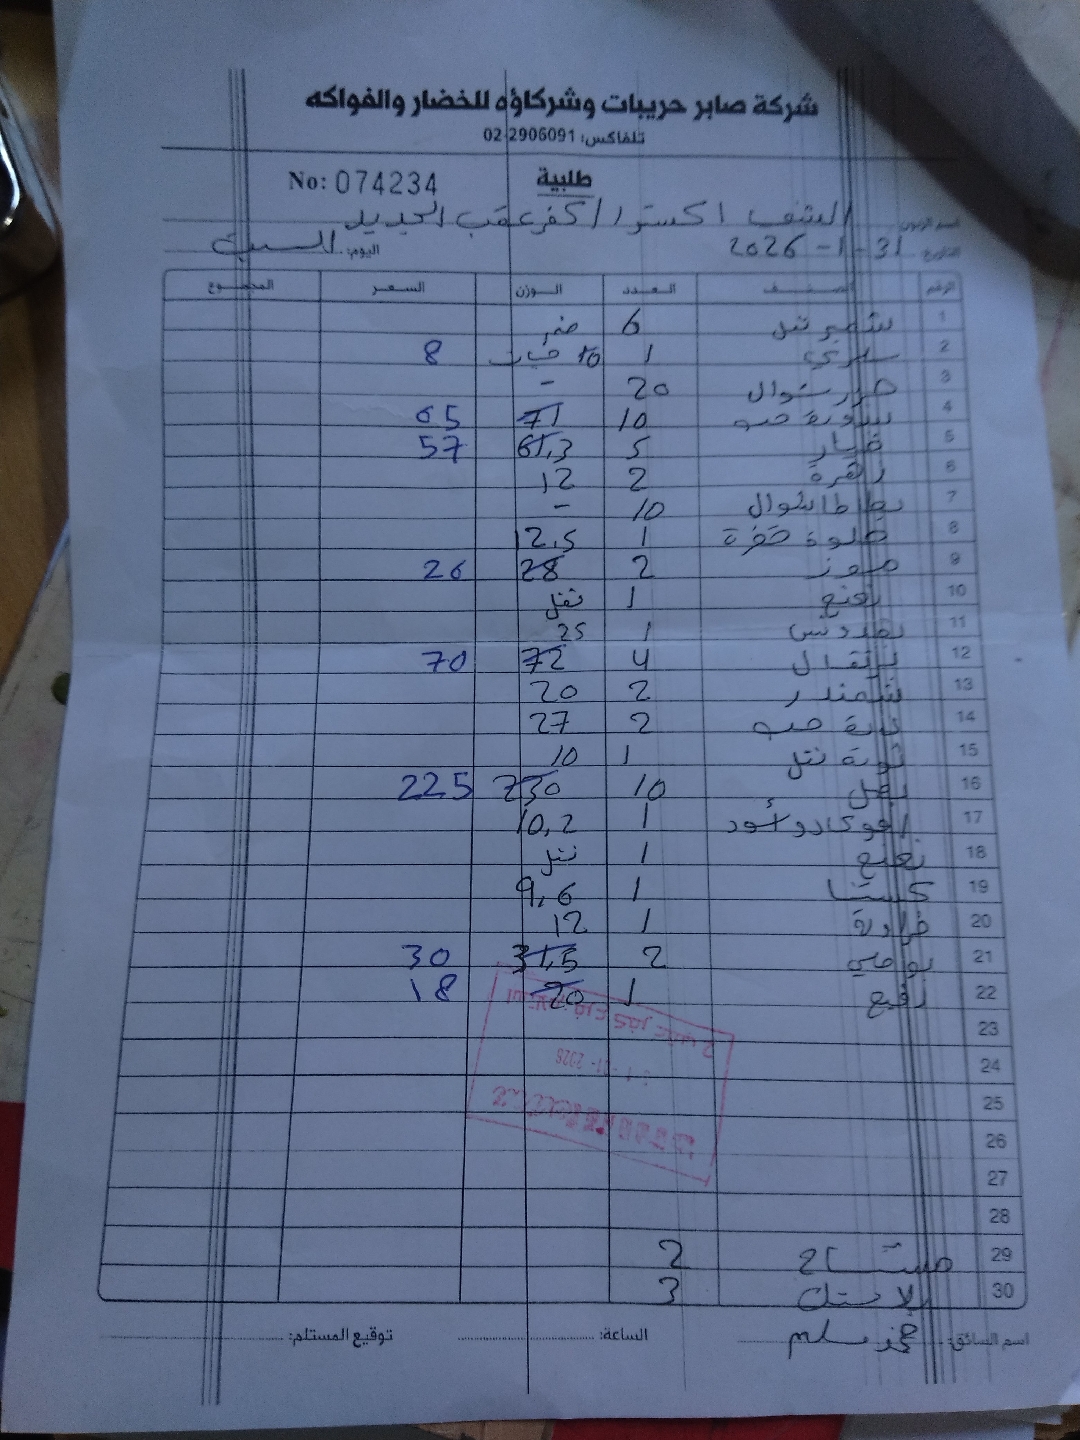 شركة صابر حريبات وشركاؤه للخضار والفواكه
تلفاكس: 02-2906091
No: 074234 طلبية
اسم الزبون: الشف اكسترا / كفر عقب الجديد
التاريخ: 31-1-2026 اليوم: السبت
الرقم الصنف العدد الوزن السعر المجموع
1 6
2 1 10 حبات 8
3 شوال 20 -
4 بندورة حب 10 71 65
5 خيار 5 61,3 57
6 زهرة 2 12
7 بطاطا شوال 10 -
8 حلوة حمرة 1 12,5
9 موز 2 28 26
10 نعنع 1
11 بقدونس 1 25
12 برتقال 4 72 70
13 شمندر 2 20
14 حب 2 27
15 1 10
16 بصل 10 230 225
17 افوكادو أسود 1 10,2
18 1
19 كستنا 1 9,6
20 1 12
21 بوملي 2 31,5 30
22 1 20 18
23
24
25
26
27
28
29 مشتاح 2
30 بلاستك 3
اسم السائق: مسلم الساعة: توقيع المستلم: